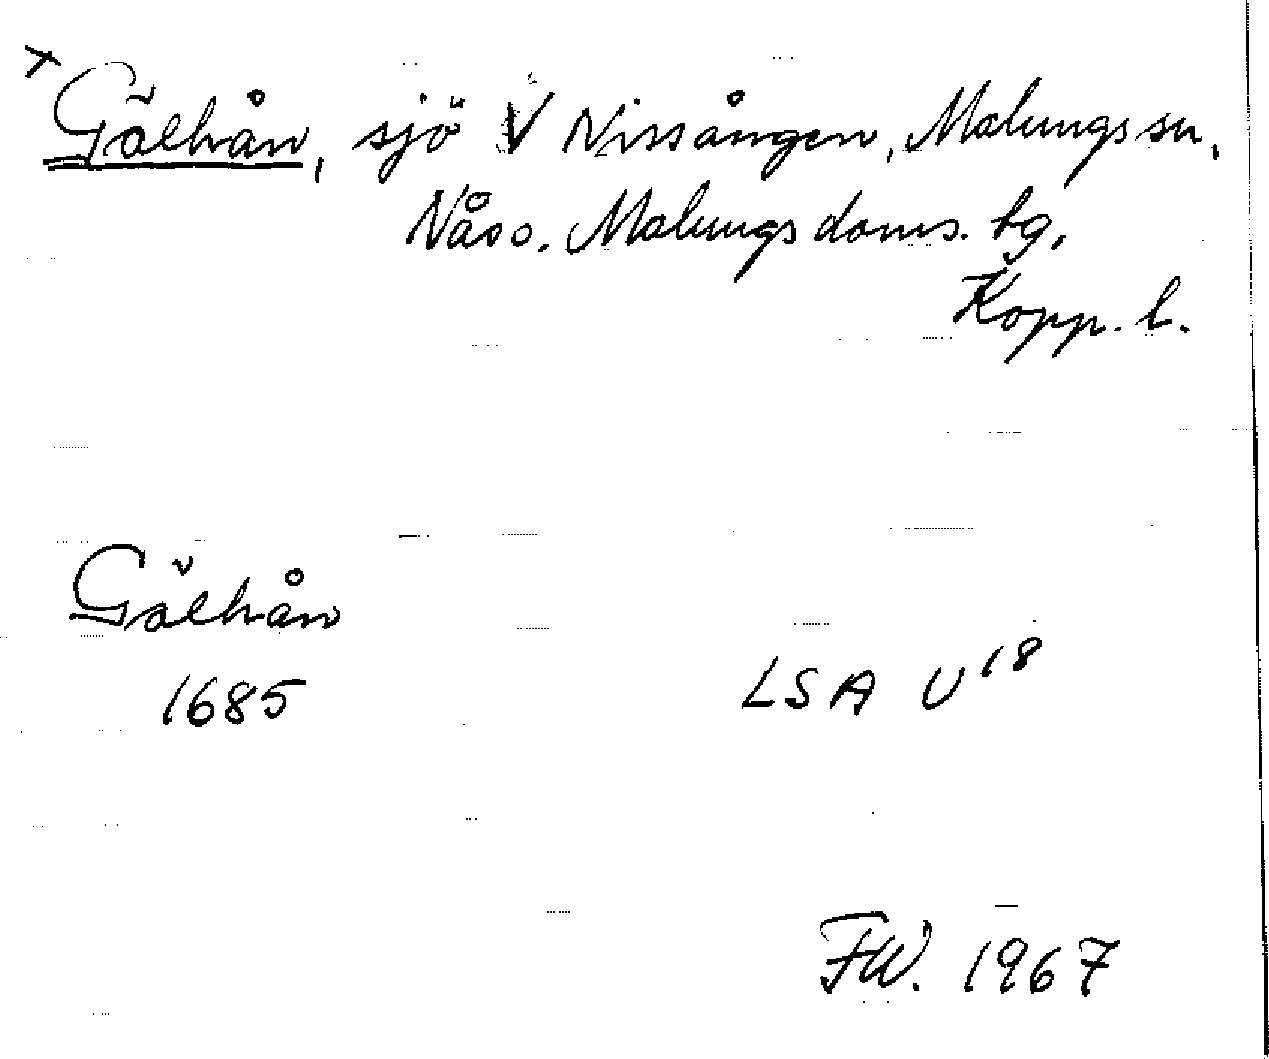 x
Gälhån, sjö V Nissången, Malungs sn,
Nås o. Malungs doms. tg,
Kopp. l.
Gälhån
1685 LSA U 18
FW. 1967